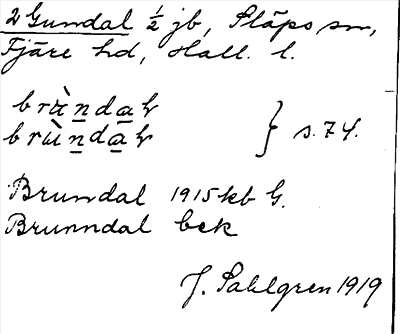 2 Gundal ½ jb, Släps sn,
Fjäre hd, Hall. l.
brùndaḷ } s. 74.
brùndaḷ
Brundal 1915 kb G.
Brunndal bek
J. Sahlgren 1919